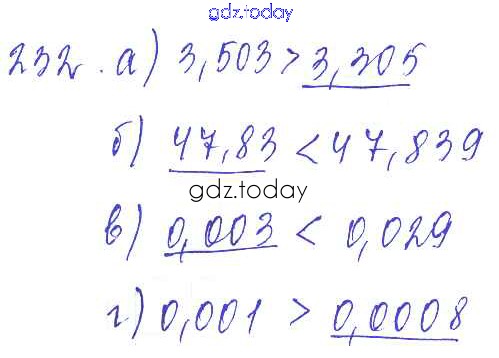 gdz.today
232. а) 3,503 > 3,305
б) 47,83 < 47,839
gdz.today
в) 0,003 < 0,029
г) 0,001 > 0,0008